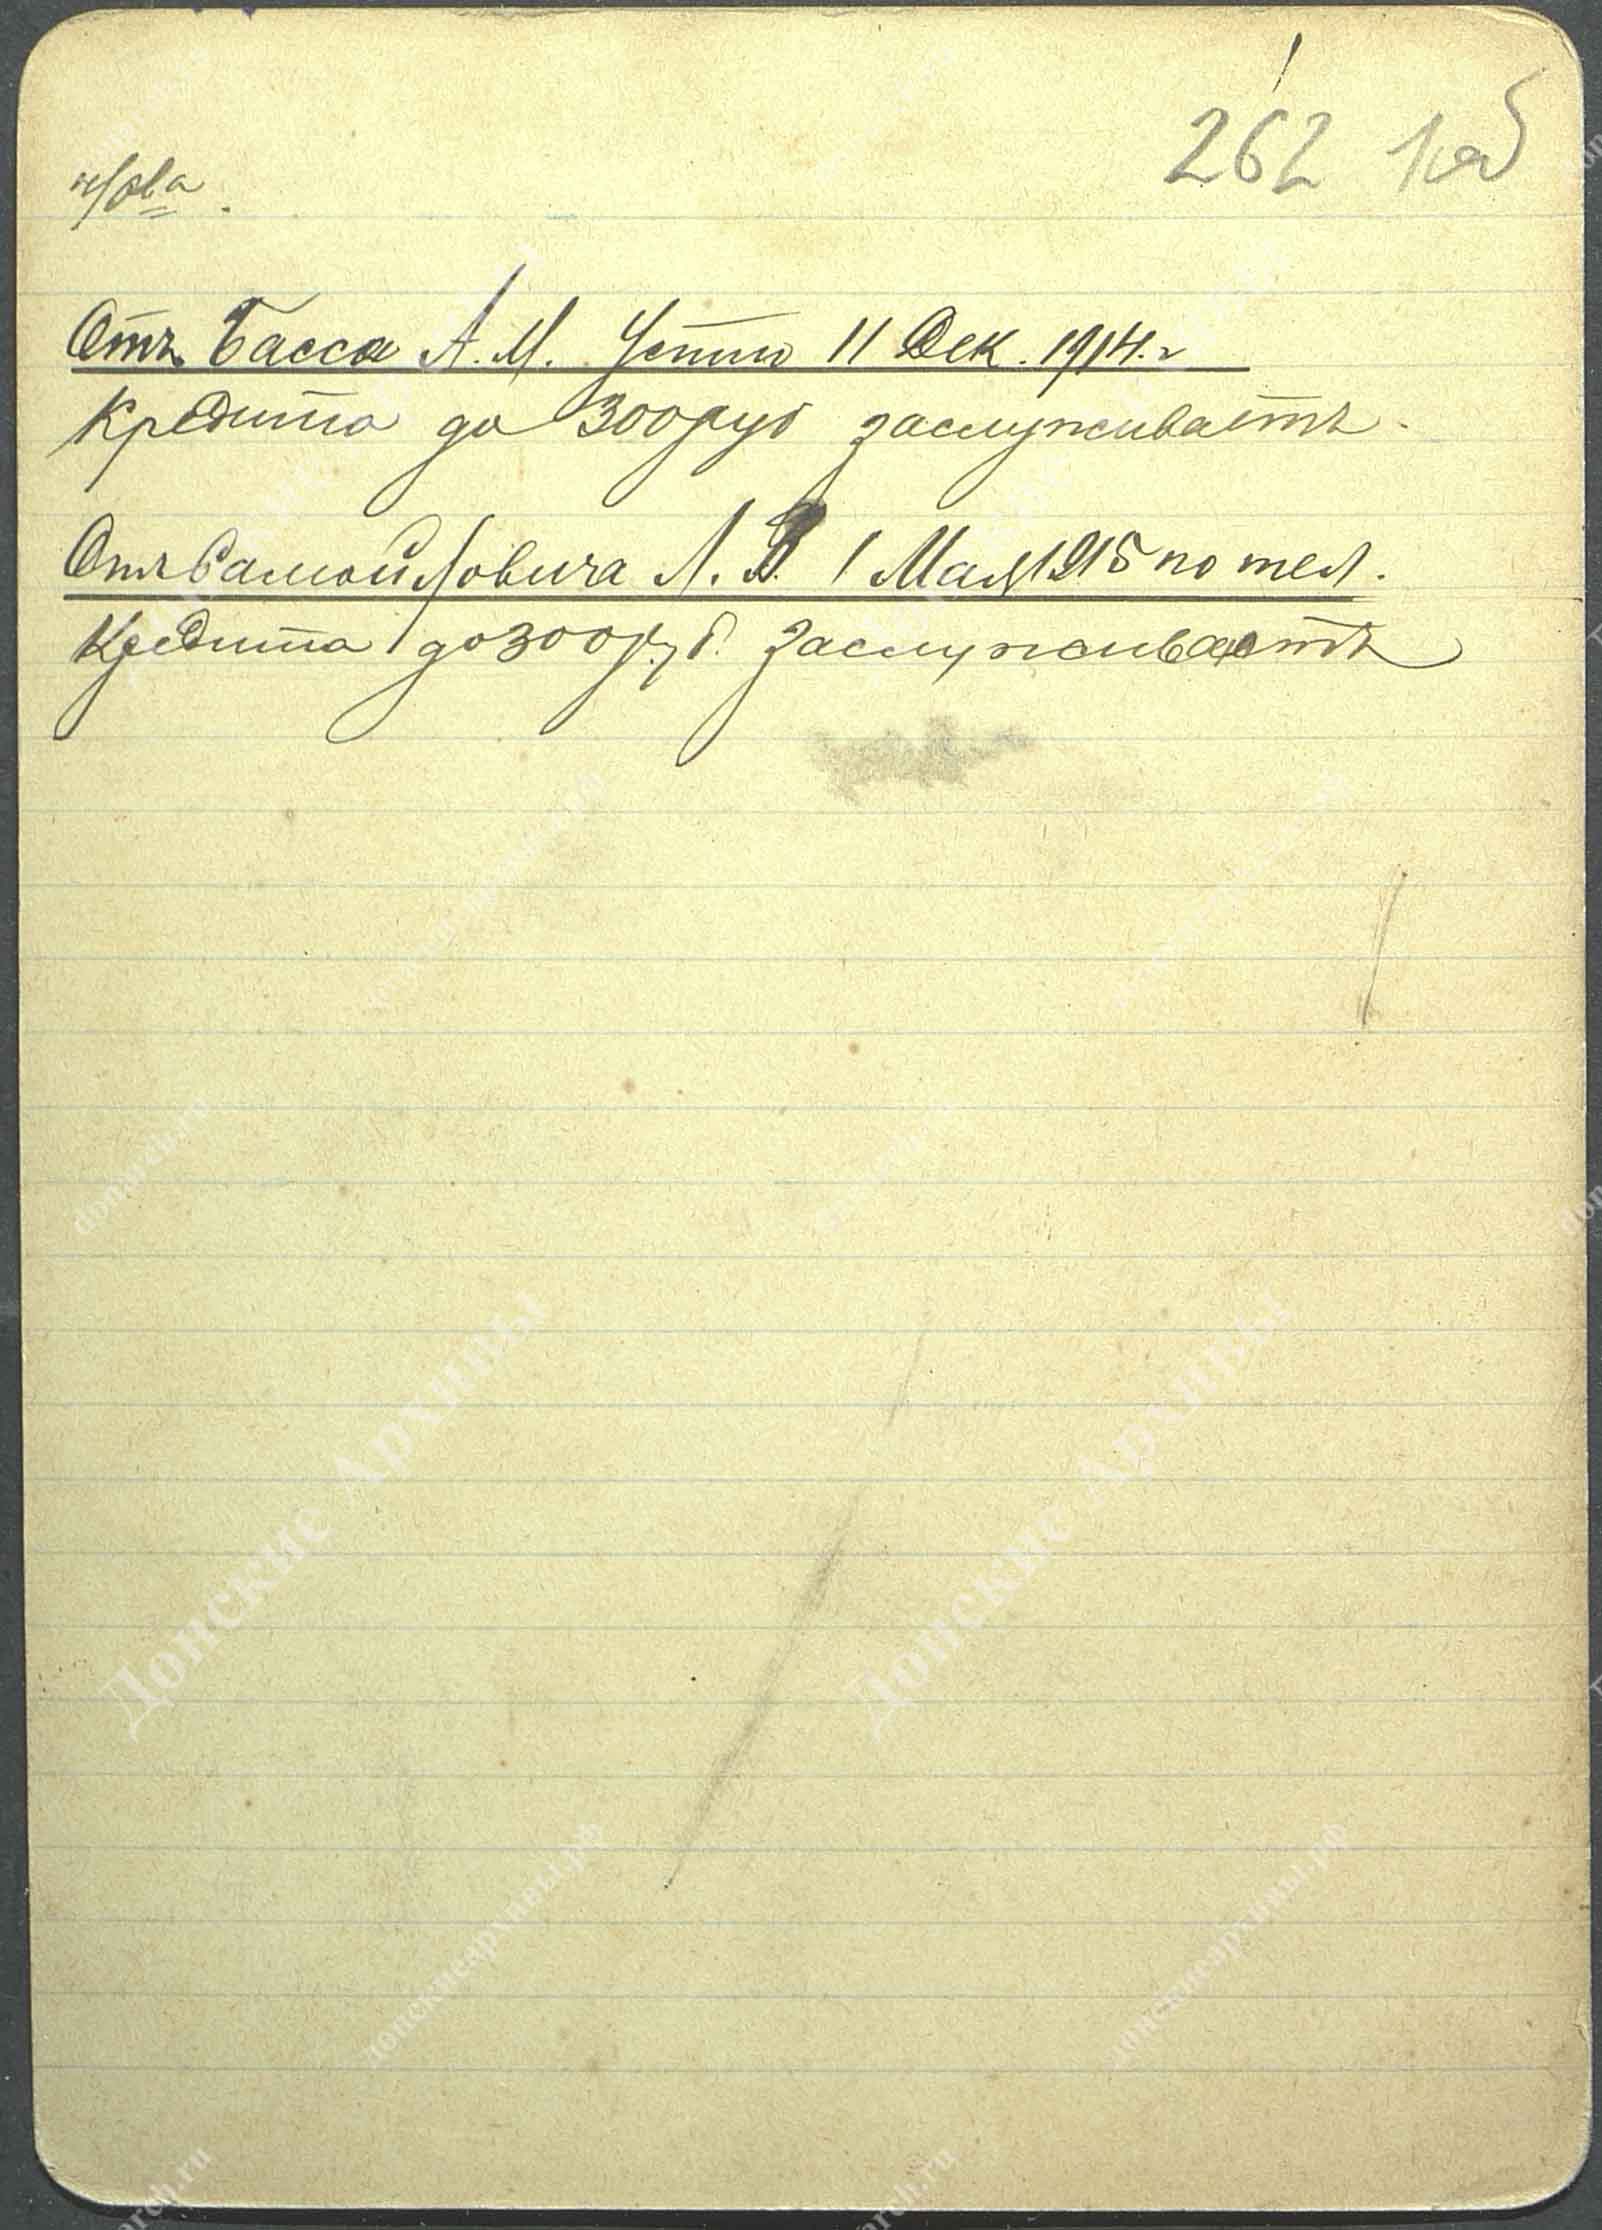 262 1 об
н/Рва.
Отъ Басса А. М. Устно 11 Дек. 1914. г
Кредита до 300 руб заслуживаетъ.
Отъ Самойловича Л. В. 1 Мая 1915 по тел.
Кредита до 300 руб. заслуживаетъ
Донские Архивы
донскиеархивы.рф
donarch.ru